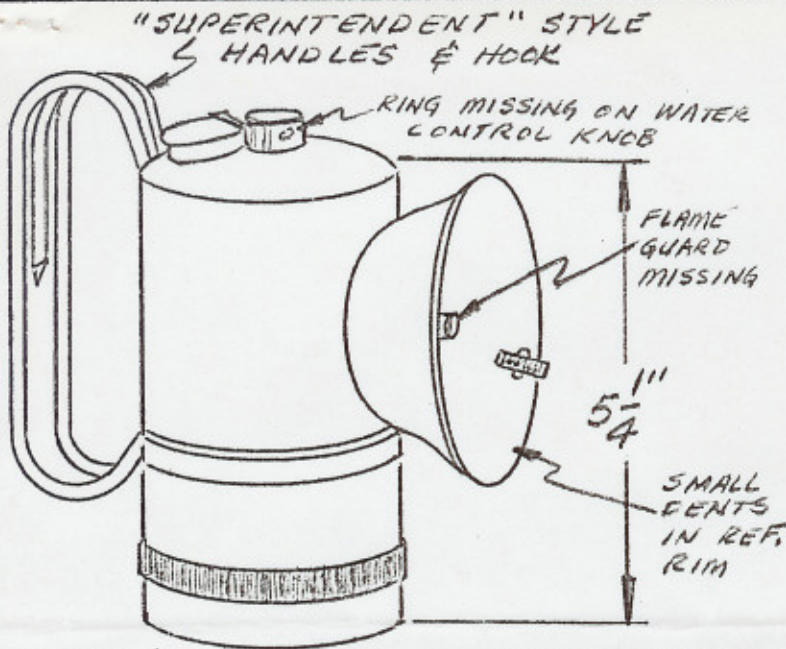 "SUPERINTENDENT" STYLE
HANDLES & HOOK
RING MISSING ON WATER
CONTROL KNOB
FLAME
GUARD
MISSING
5 1/4"
SMALL
DENTS
IN REF.
RIM